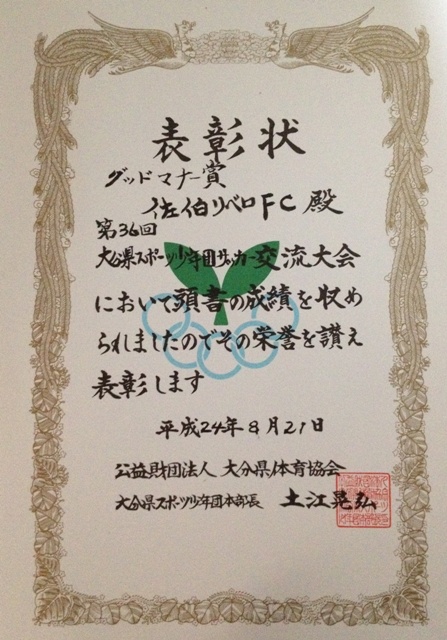 表彰状
グッドマナー賞
佐伯リベロFC殿
第36回
大分県スポーツ少年団サッカー交流大会
において頭書の成績を収め
られましたのでその栄誉を讃え
表彰します
平成24年8月21日
公益財団法人 大分県体育協会
大分県スポーツ少年団本部長 土江晃弘